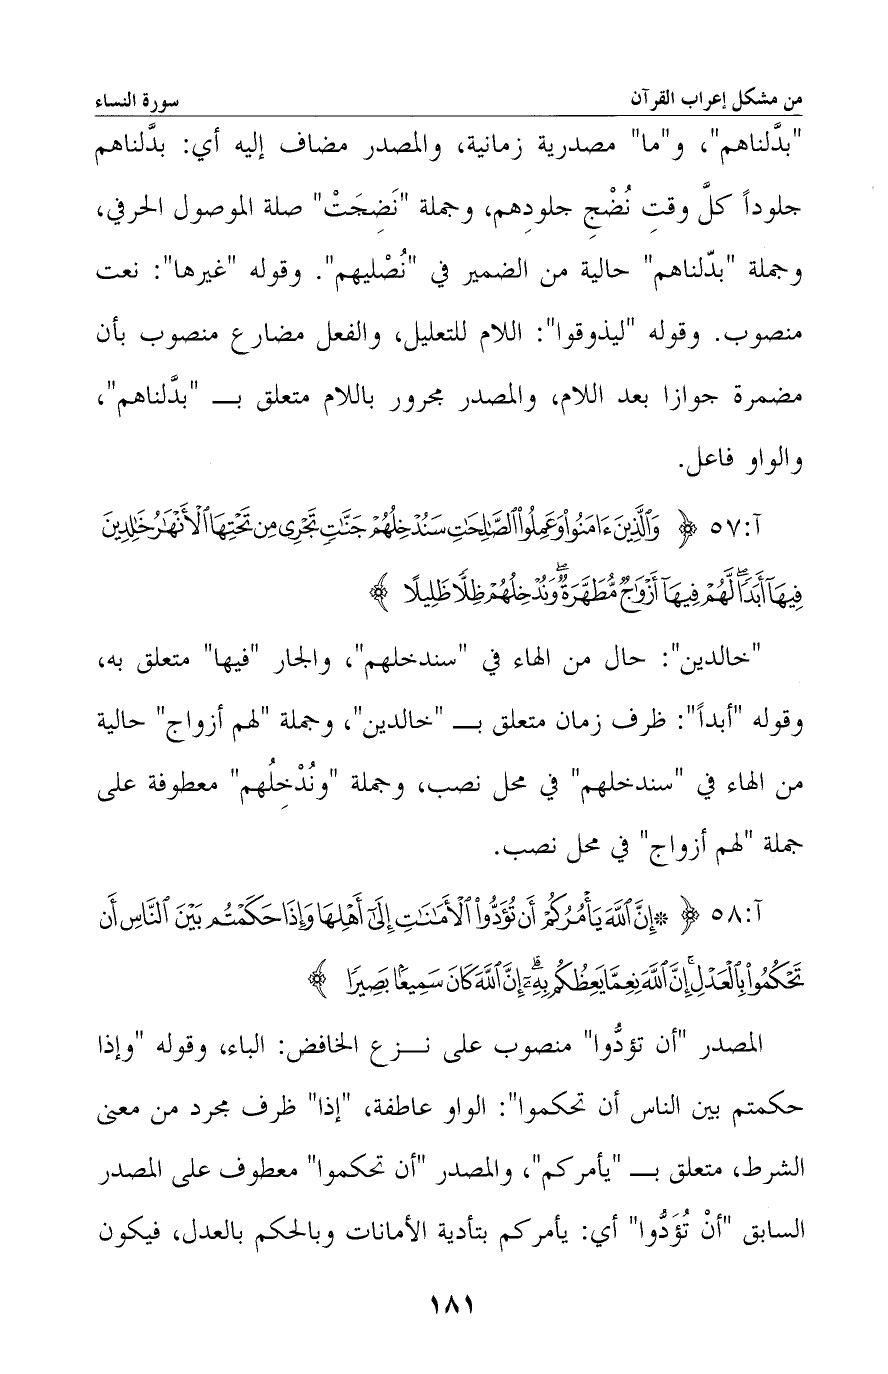 من مشكل إعراب القرآن سورة النساء
"بدَّلناهم"، و"ما" مصدرية زمانية، والمصدر مضاف إليه أي: بدَّلناهم
جلوداً كلَّ وقتِ نُضْجِ جلودِهم، وجملة "نَضِجَتْ" صلة الموصول الحرفي،
وجملة "بدّلناهم" حالية من الضمير في "نُصْليهم". وقوله "غيرها": نعت
منصوب. وقوله "ليذوقوا": اللام للتعليل، والفعل مضارع منصوب بأن
مضمرة جوازا بعد اللام، والمصدر مجرور باللام متعلق بـ "بدَّلناهم"،
والواو فاعل.
آ:٥٧ ﴿ وَٱلَّذِينَ ءَامَنُوا۟ وَعَمِلُوا۟ ٱلصَّٰلِحَٰتِ سَنُدْخِلُهُمْ جَنَّٰتٍ تَجْرِى مِن تَحْتِهَا ٱلْأَنْهَٰرُ خَٰلِدِينَ
فِيهَآ أَبَدًا ۖ لَّهُمْ فِيهَآ أَزْوَٰجٌ مُّطَهَّرَةٌ ۖ وَنُدْخِلُهُمْ ظِلًّا ظَلِيلًا ﴾
"خالدين": حال من الهاء في "سندخلهم"، والجار "فيها" متعلق به،
وقوله "أبداً": ظرف زمان متعلق بـ "خالدين"، وجملة "لهم أزواج" حالية
من الهاء في "سندخلهم" في محل نصب، وجملة "ونُدْخِلُهم" معطوفة على
جملة "لهم أزواج" في محل نصب.
آ:٥٨ ﴿ ۞إِنَّ ٱللَّهَ يَأْمُرُكُمْ أَن تُؤَدُّوا۟ ٱلْأَمَٰنَٰتِ إِلَىٰٓ أَهْلِهَا وَإِذَا حَكَمْتُم بَيْنَ ٱلنَّاسِ أَن
تَحْكُمُوا۟ بِٱلْعَدْلِ ۚ إِنَّ ٱللَّهَ نِعِمَّا يَعِظُكُم بِهِۦٓ ۗ إِنَّ ٱللَّهَ كَانَ سَمِيعًۢا بَصِيرًا ﴾
المصدر "أن تؤدُّوا" منصوب على نـزع الخافض: الباء، وقوله "وإذا
حكمتم بين الناس أن تحكموا": الواو عاطفة، "إذا" ظرف مجرد من معنى
الشرط، متعلق بـ "يأمركم"، والمصدر "أن تحكموا" معطوف على المصدر
السابق "أنْ تُؤَدُّوا" أي: يأمركم بتأدية الأمانات وبالحكم بالعدل، فيكون
١٨١